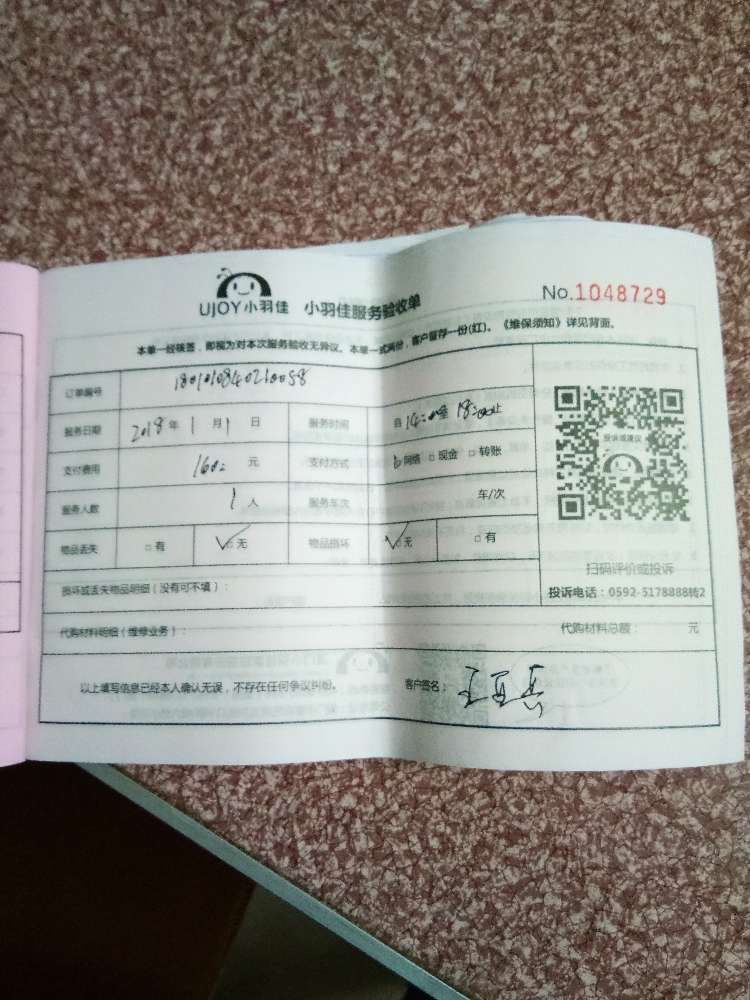 UJOY小羽佳 小羽佳服务验收单 No.1048729
本单一经核签，即视为对本次服务验收无异议。本单一式两份，客户留存一份(红)。《维保须知》详见背面。
订单编号 1801010840210058
服务日期 2018年1月1日 服务时间 自14:00至18:00止
支付费用 160 元 支付方式 □网络 □现金 □转账
服务人数 1人 服务车次 车/次
物品丢失 □有 ✓□无 物品损坏 ✓□无 □有
投诉或建议
扫码评价或投诉
投诉电话：0592-5178888转2
损坏或丢失物品明细（没有可不填）：
代购材料明细（维修业务）： 代购材料总额： 元
以上填写信息已经本人确认无误，不存在任何争议纠纷。 客户签名：